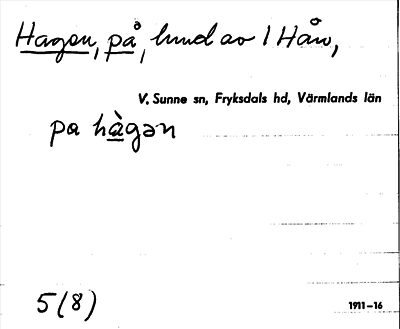 Hagen, på, lund av 1 Hån,
V. Sunne sn, Fryksdals hd, Värmlands län
pa hàgən
5(8)
1911-16